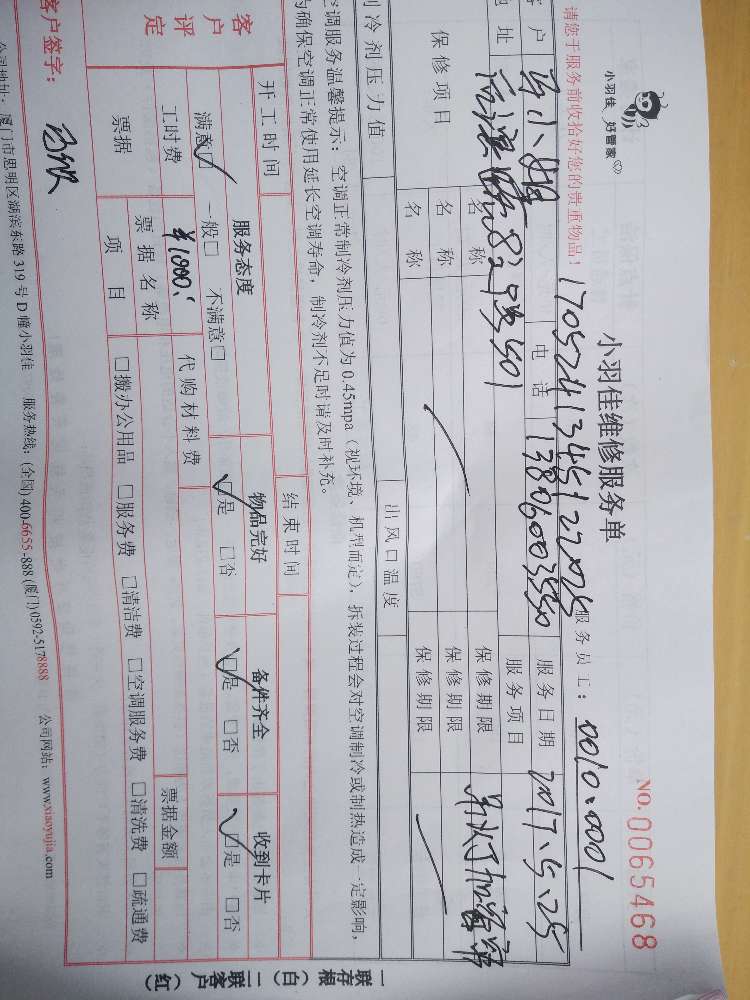 小羽佳 好管家
小羽佳维修服务单
NO. 0065468
请您于服务前收拾好您的贵重物品！
服务员工：0010.0001
客户 电话 13806003550 服务日期 2017.5.25
地址 服务项目
保修项目 名称 保修期限
名称 保修期限
名称 保修期限
制冷剂压力值 出风口温度
空调服务温馨提示：空调正常制冷剂压力值为 0.45mpa（视环境、机型而定），拆装过程会对空调制冷或制热造成一定影响，
为确保空调正常使用延长空调寿命，制冷剂不足时请及时补充。
开工时间 结束时间
客户评定 服务态度 物品完好 备件齐全 收到卡片
满意☑ 一般□ 不满意□ ☑是 □否 ☑是 □否 ☑是 □否
工时费 ¥1000. 代购材料费
票据 票据名称 票据金额
项目 □搬办公用品 □服务费 □清洁费 □空调服务费 □清洗费 □疏通费
客户签字：
公司地址：厦门市思明区湖滨东路 319 号 D 幢小羽佳 服务热线：(全国) 400-6655-888 (厦门) 0592-5178888 公司网站：www.xiaoyujia.com
一联存根（白） 二联客户（红）